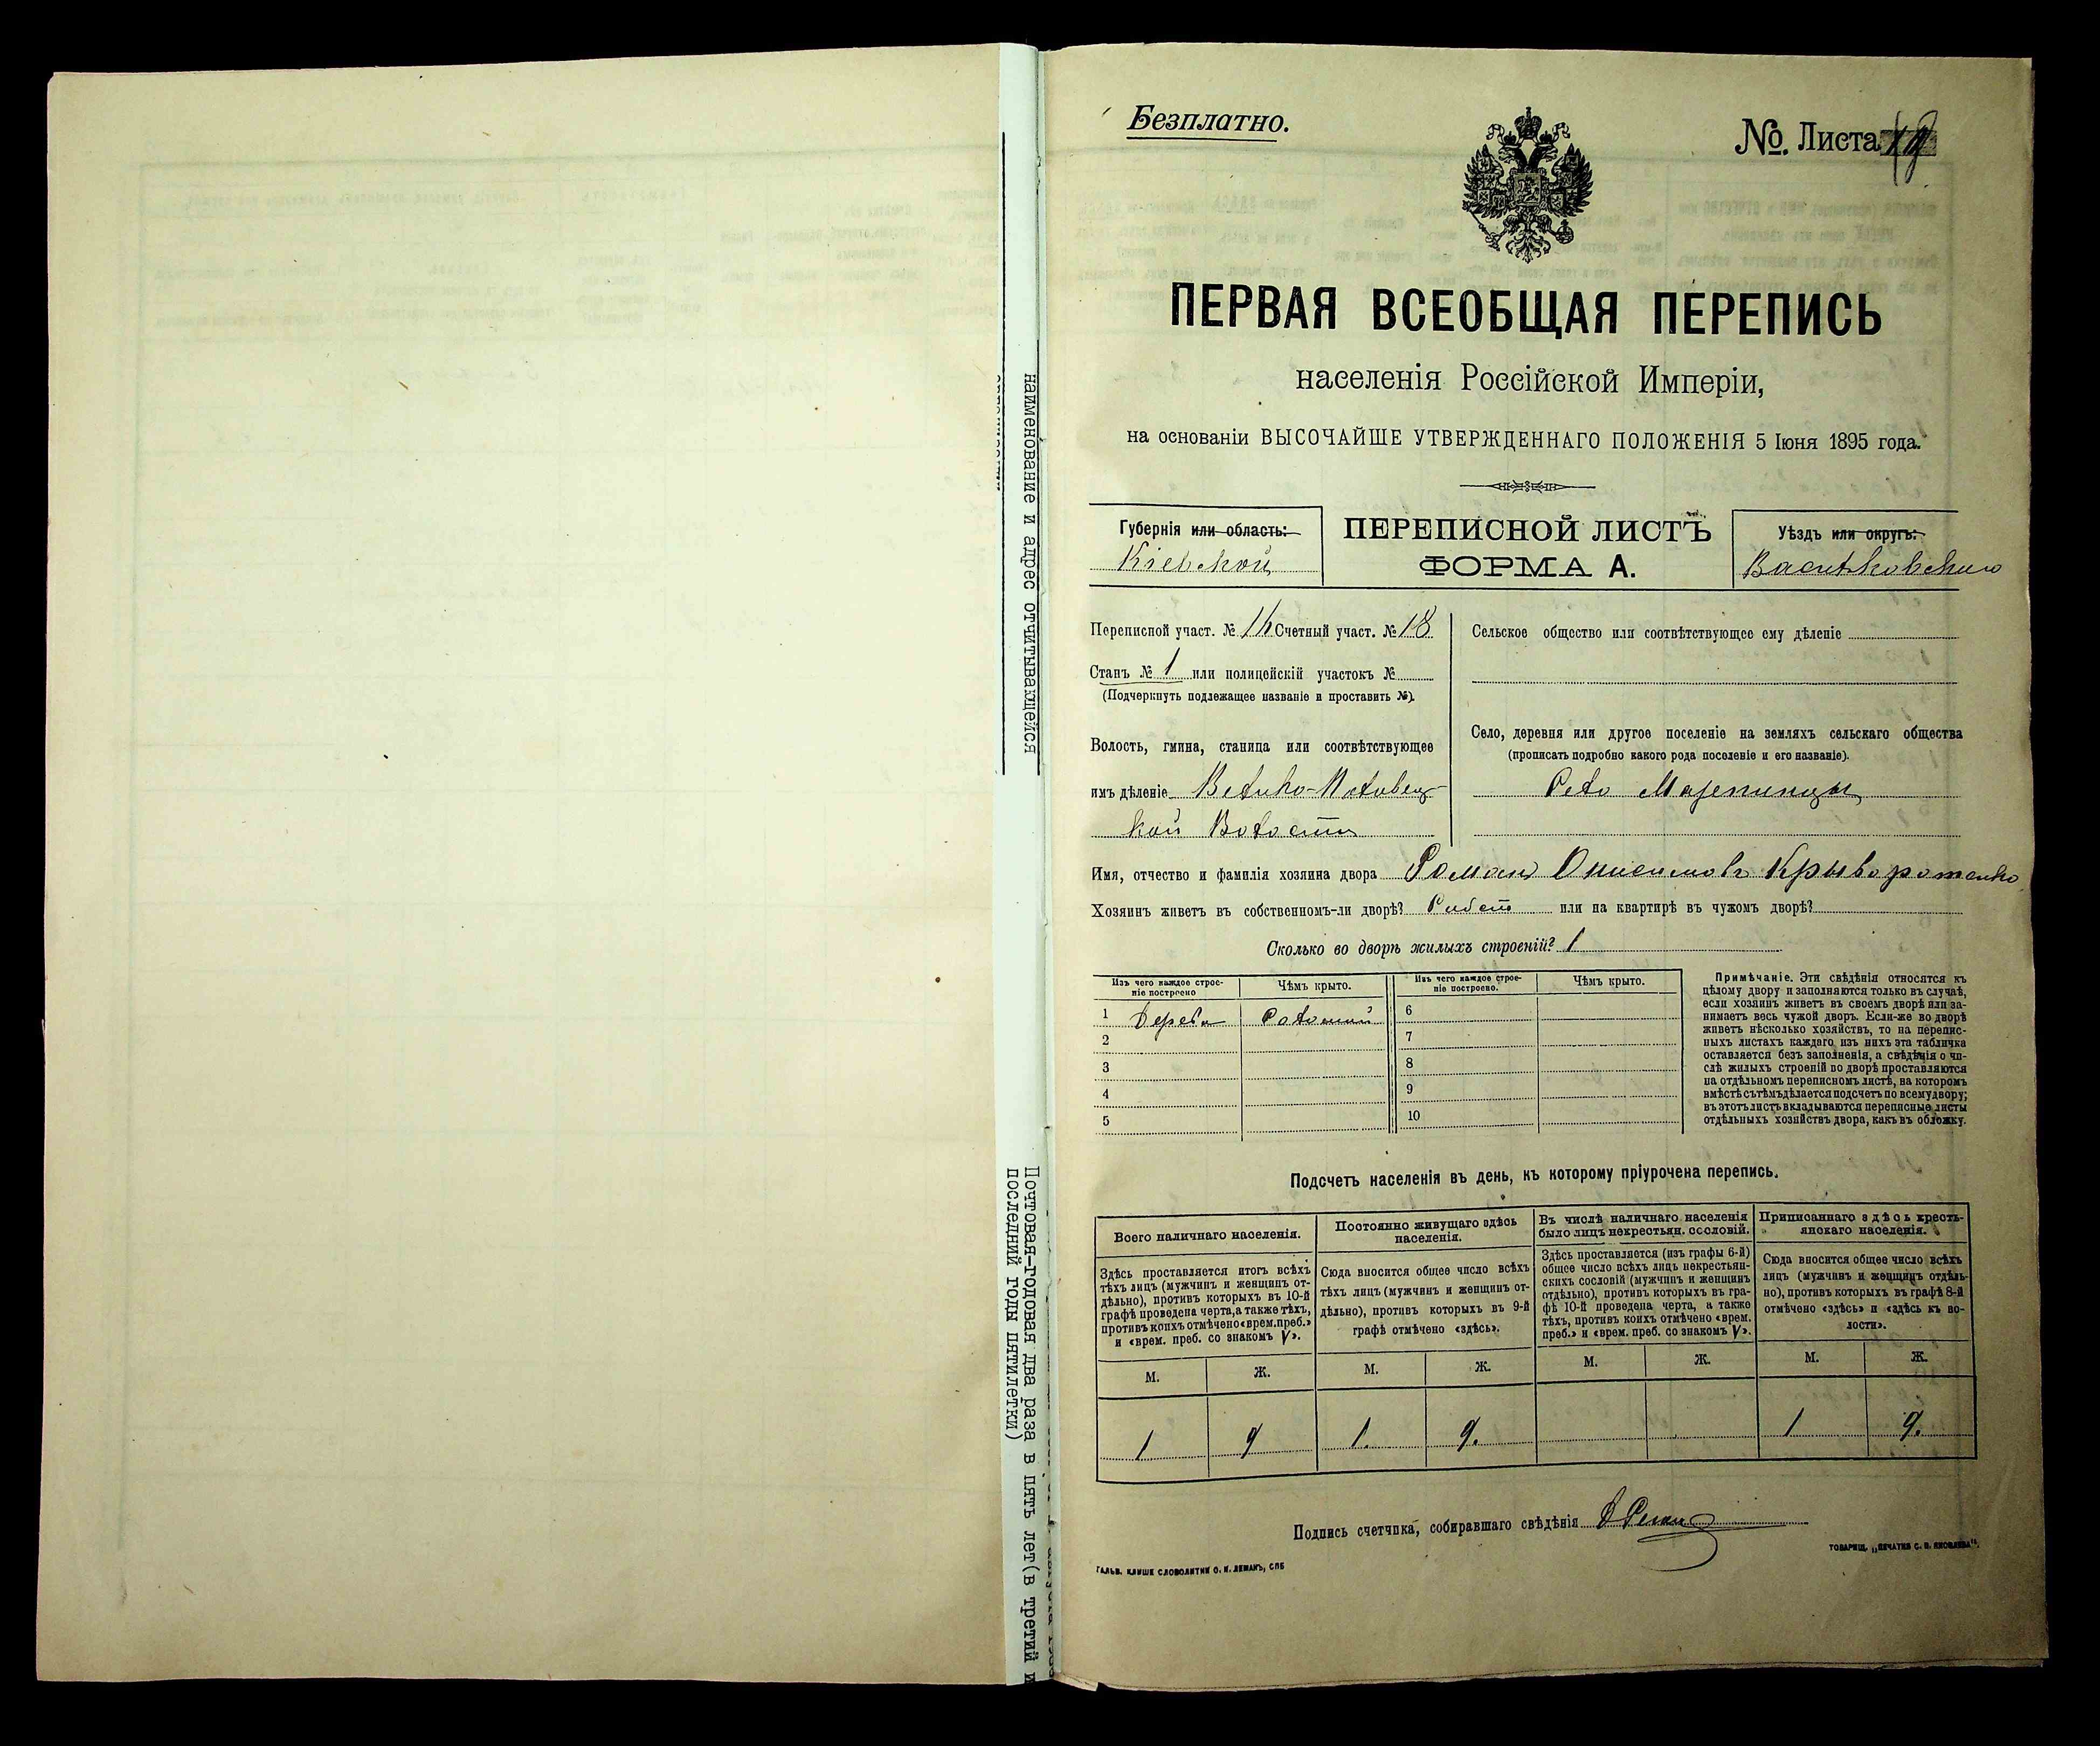 Безплатно.
№. Листа
ПЕРВАЯ ВСЕОБЩАЯ ПЕРЕПИСЬ
населенія Россійской Имперіи,
на основаніи ВЫСОЧАЙШЕ УТВЕРЖДЕННАГО ПОЛОЖЕНІЯ 5 Іюня 1895 года.
Губернія или область:
Кіевской
ПЕРЕПИСНОЙ ЛИСТЪ
ФОРМА А.
Уѣздъ или округъ:
Васильковскаго
Переписной участ. № 16 Счетный участ. № 18
Станъ № 1 или полицейскій участокъ №
(Подчеркнуть подлежащее названіе и проставить №).
Волость, гмина, станица или соотвѣтствующее
имъ дѣленіе Велико-Половец-
кой Волости
Сельское общество или соотвѣтствующее ему дѣленіе
Село, деревня или другое поселеніе на земляхъ сельскаго общества
(прописать подробно какого рода поселеніе и его названіе).
Село Мазепинцы
Имя, отчество и фамилія хозяина двора Романъ Онисимовъ Крыворотенко
Хозяинъ живетъ въ собственномъ-ли дворѣ? или на квартирѣ въ чужомъ дворѣ?
Сколько во дворѣ жилыхъ строеній? 1
Изъ чего каждое строе-
ніе построено
Чѣмъ крыто.
Изъ чего каждое строе-
ніе построено.
Чѣмъ крыто.
1 Дерева Соломой
2
3
4
5
6
7
8
9
10
Примѣчаніе. Эти свѣдѣнія относятся къ
цѣлому двору и заполняются только въ случаѣ,
если хозяинъ живетъ въ своемъ дворѣ или за-
нимаетъ весь чужой дворъ. Если-же во дворѣ
живетъ нѣсколько хозяйствъ, то на перепис-
ныхъ листахъ каждаго изъ нихъ эта табличка
оставляется безъ заполненія, а свѣдѣнія о чи-
слѣ жилыхъ строеній во дворѣ проставляются
на отдѣльномъ переписномъ листѣ, на которомъ
вмѣстѣ съ тѣмъ дѣлается подсчетъ по всему двору;
въ этотъ листъ вкладываются переписные листы
отдѣльныхъ хозяйствъ двора, какъ въ обложку.
Подсчетъ населенія въ день, къ которому пріурочена перепись.
Всего наличнаго населенія.
Здѣсь проставляется итогъ всѣхъ
тѣхъ лицъ (мужчинъ и женщинъ от-
дѣльно), противъ которыхъ въ 10-й
графѣ проведена черта, а также тѣхъ,
противъ коихъ отмѣчено «врем. преб.»
и «врем. преб. со знакомъ V».
Постоянно живущаго здѣсь
населенія.
Сюда вносится общее число всѣхъ
тѣхъ лицъ (мужчинъ и женщинъ от-
дѣльно), противъ которыхъ въ 9-й
графѣ отмѣчено «здѣсь».
Въ числѣ наличнаго населенія
было лицъ некрестьян. сословій.
Здѣсь проставляется (изъ графы 6-й)
общее число всѣхъ лицъ некрестьян-
скихъ сословій (мужчинъ и женщинъ
отдѣльно), противъ которыхъ въ гра-
фѣ 10-й проведена черта, а также
тѣхъ, противъ коихъ отмѣчено «врем.
преб.» и «врем. преб. со знакомъ V».
Приписаннаго здѣсь кресть-
янскаго населенія.
Сюда вносится общее число всѣхъ
лицъ (мужчинъ и женщинъ отдѣль-
но), противъ которыхъ въ графѣ 8-й
отмѣчено «здѣсь» и «здѣсь къ во-
лости».
М. Ж. М. Ж. М. Ж. М. Ж.
1 9 1. 9. 1 9.
Подпись счетчика, собиравшаго свѣдѣнія
ГАЛЬВ. КЛИШЕ СЛОВОЛИТНИ О. И. ЛЕМАНЪ, СПБ
ТОВАРИЩ. „ПЕЧАТНЯ С. П. ЯКОВЛЕВА“.
наименование и адрес отчитывающейся
Почтовая-годовая два раза в пять лет(в третий и
последний годы пятилетки)